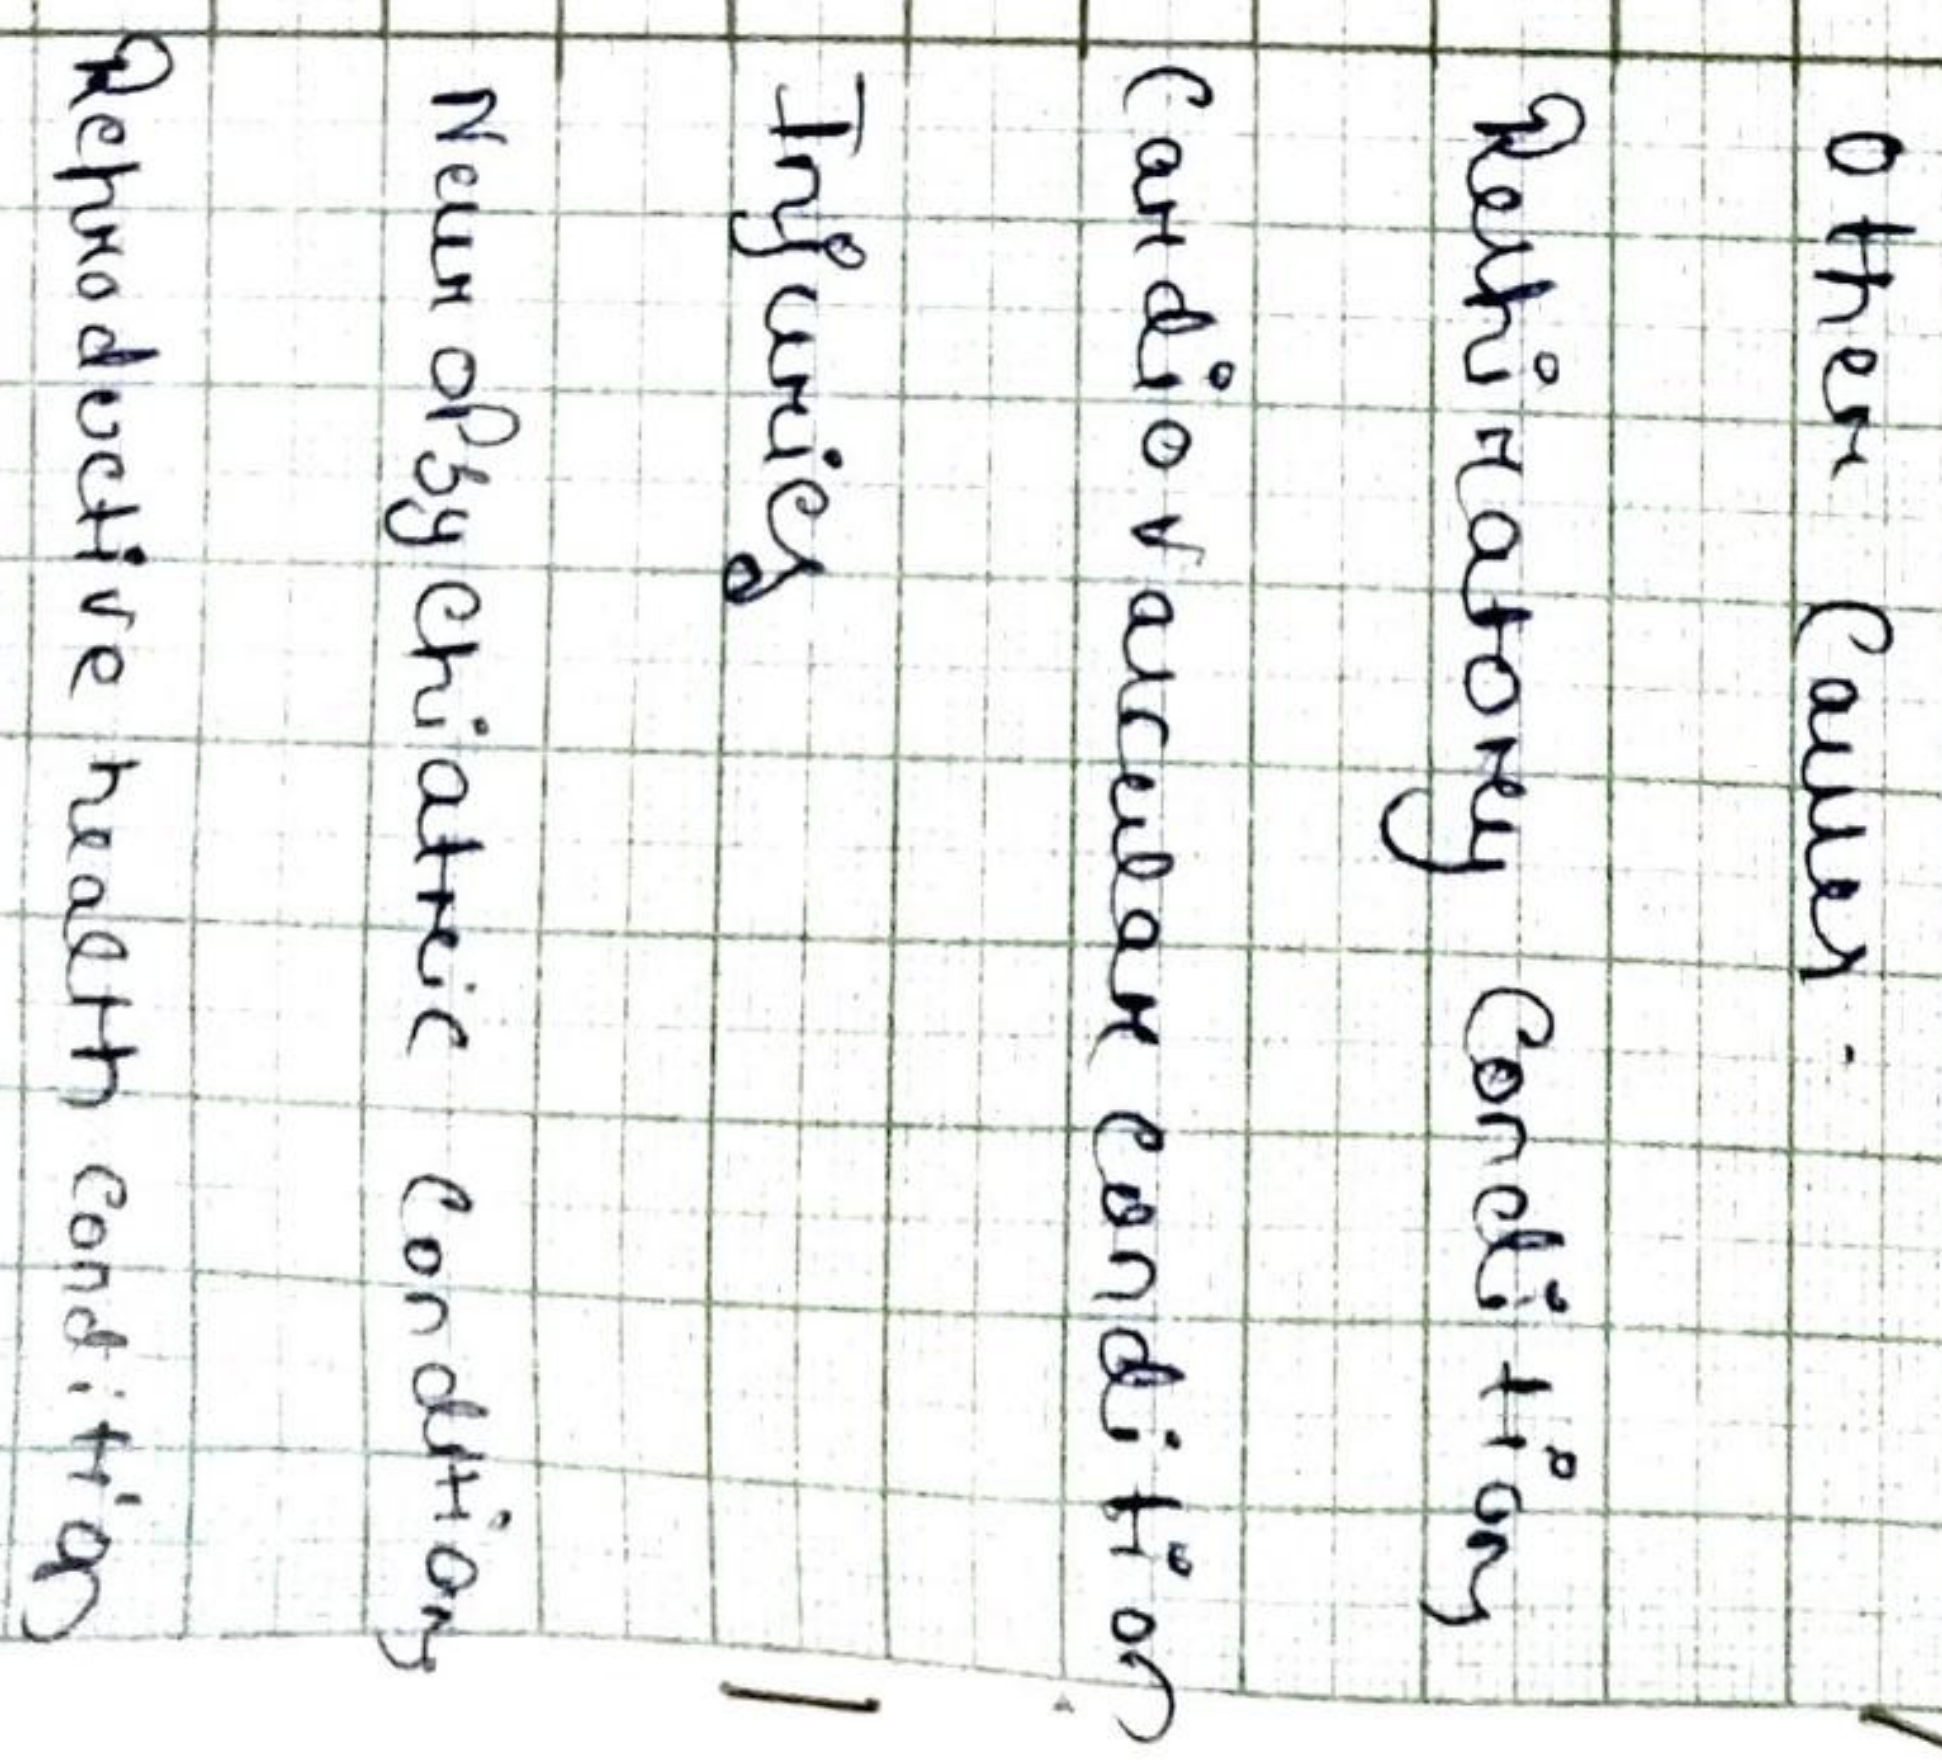 Other Causes.
Respiratory Conditions
Cardiovascular Condition
Injuries
Neuropsychiatric Conditions
Reproductive health condition